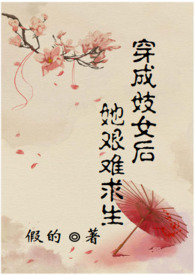 穿成妓女后
她艰难求生
假的◎著